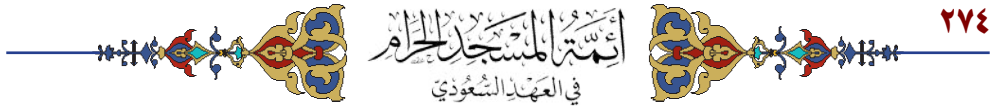 ٢٧٤
أَئِمَّةُ المَسْجِدِ الحَرَامِ
فِي العَهْدِ السُّعُودِيّ